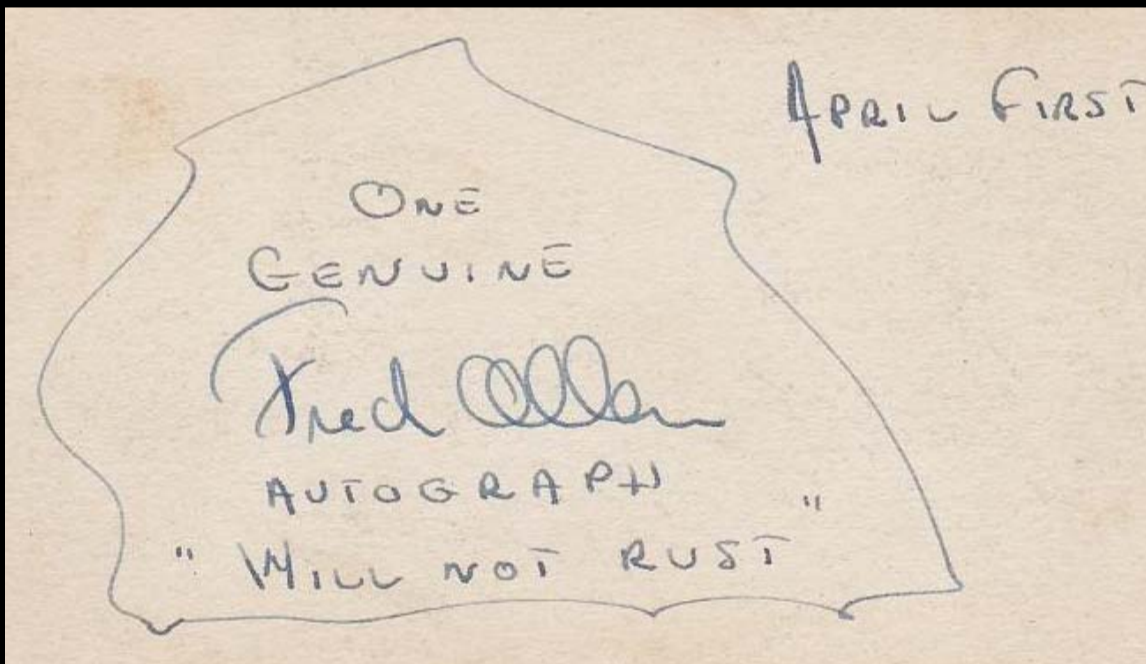 APRIL FIRST
ONE
GENUINE
Fred Allen
AUTOGRAPH
" WILL NOT RUST "